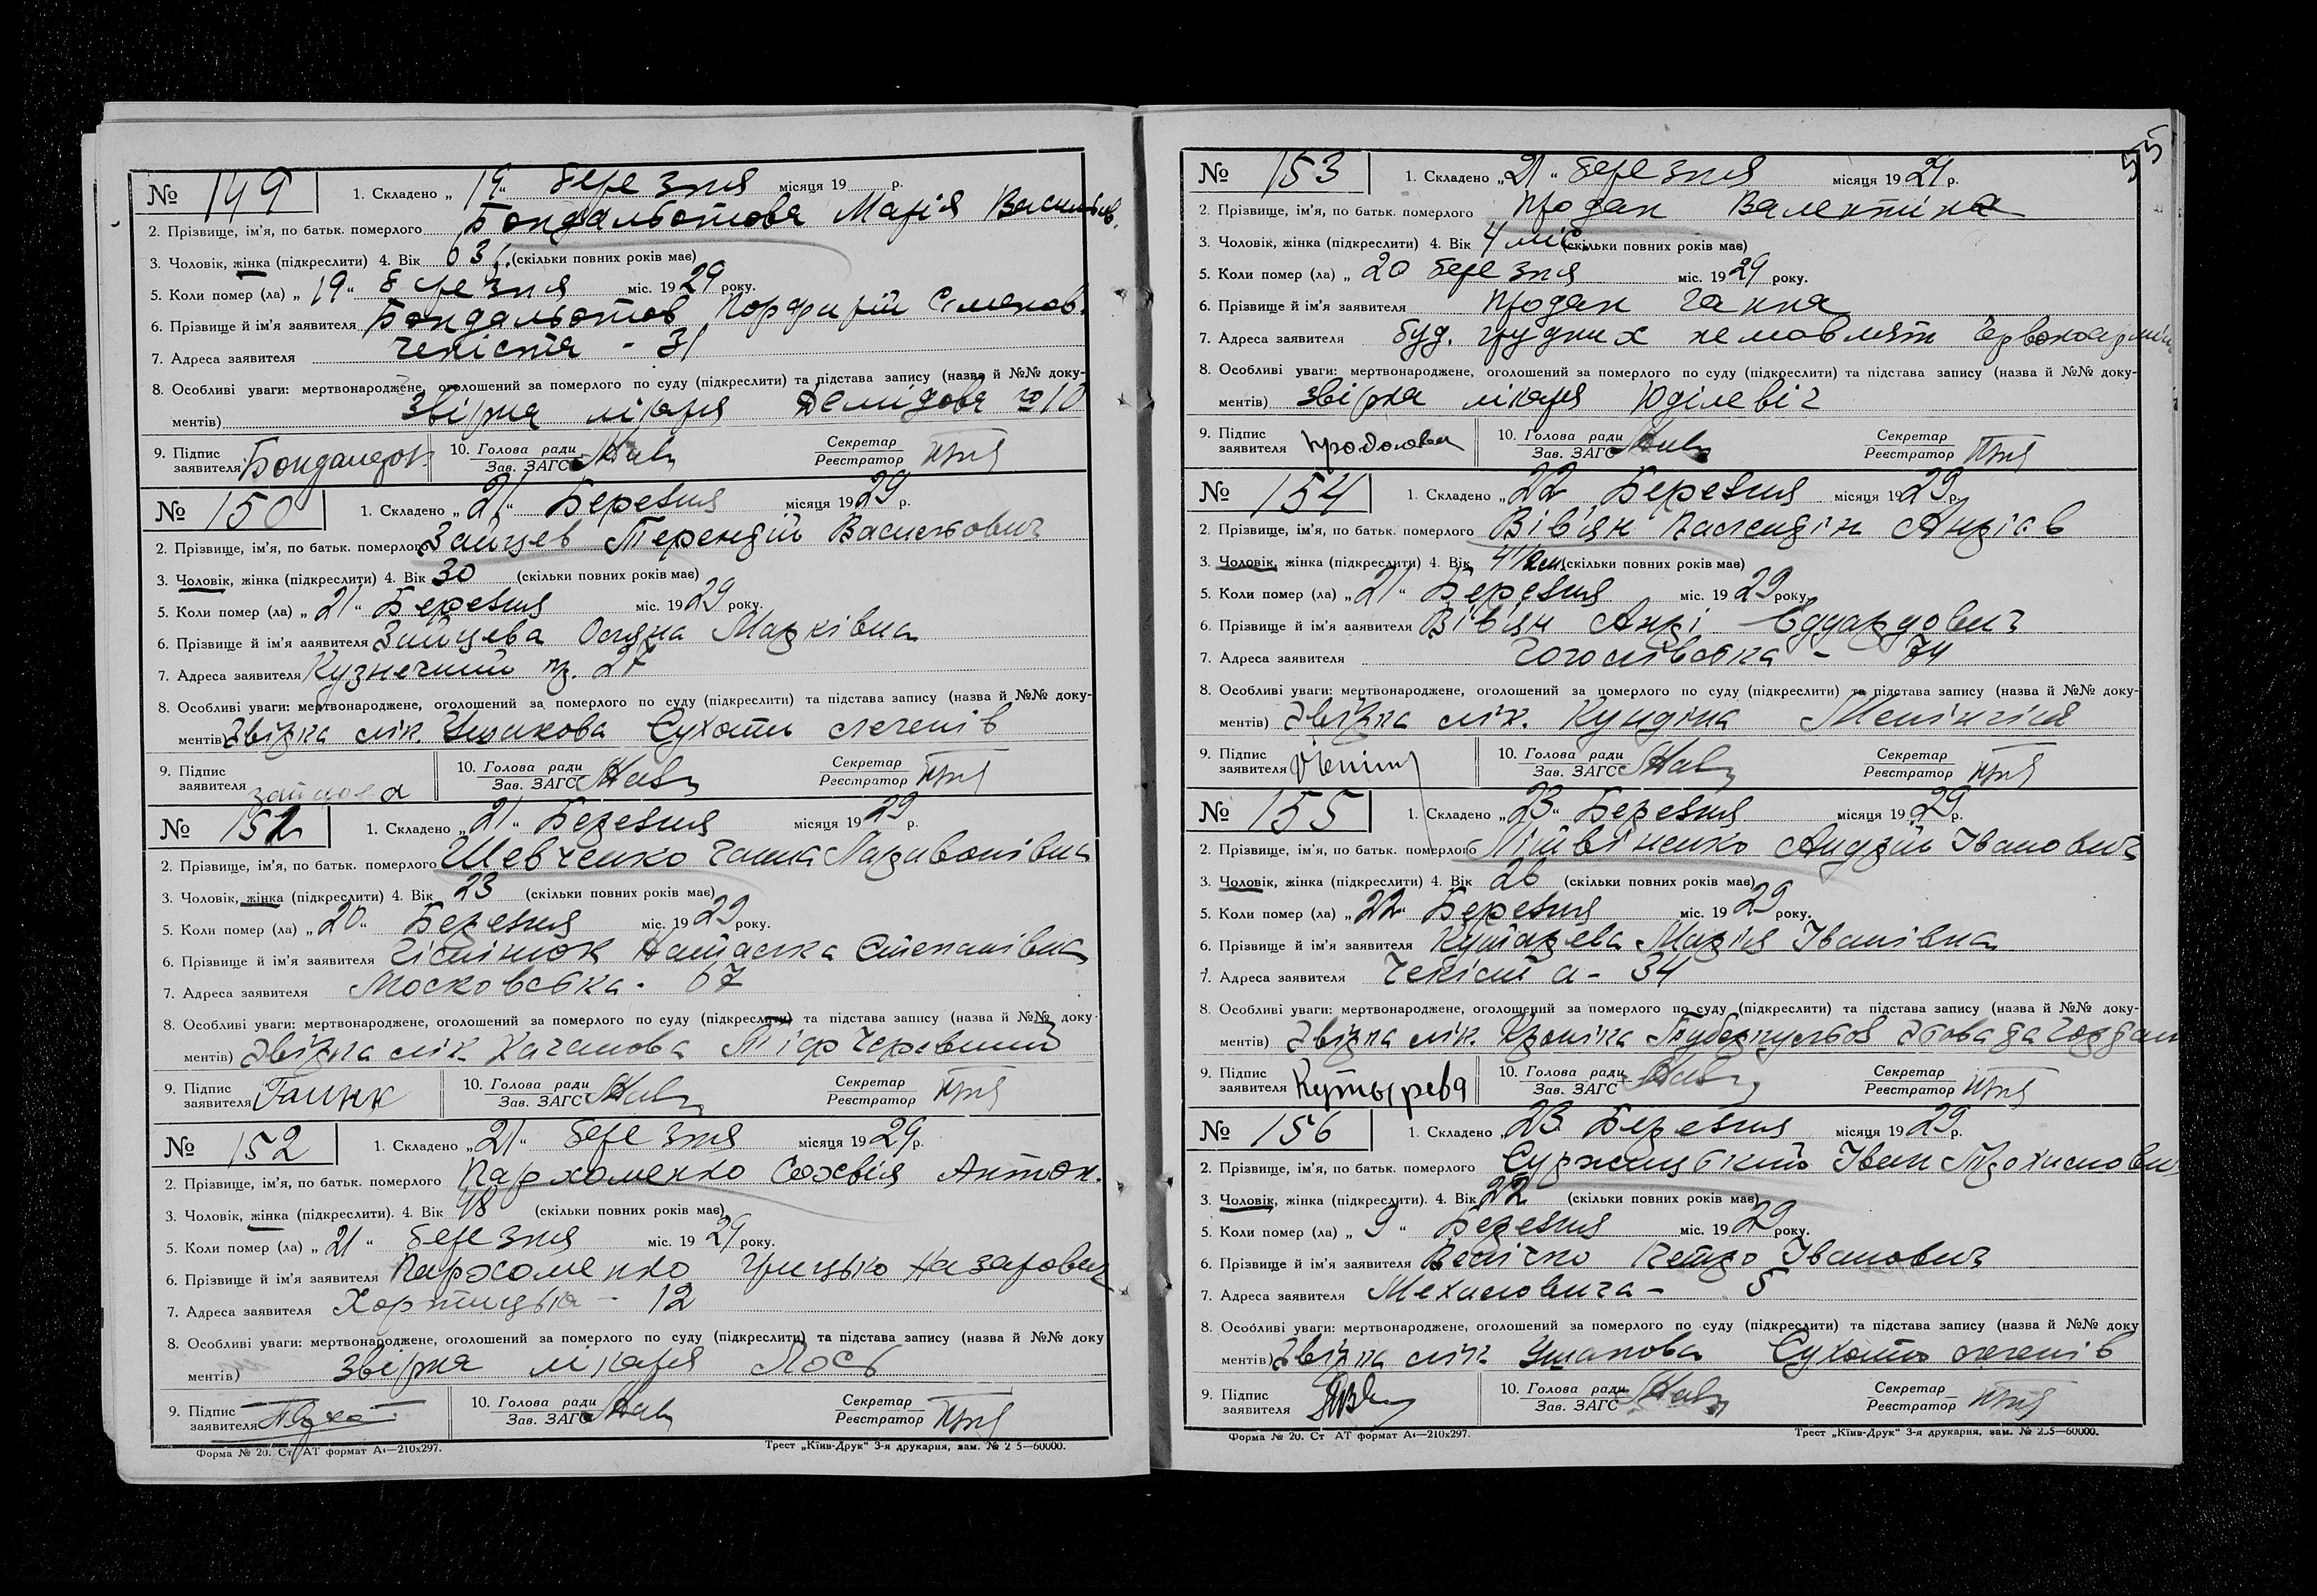 № 149 1. Складено „ 19 “ березня місяця 19 р.
2. Прізвище, ім'я, по батьк. померлого Бондальотова Марія Васильів.
3. Чоловік, жінка (підкреслити) 4. Вік 63 (скільки повних років має)
5. Коли помер (ла) „ 19 “ березня міс. 19 29 року.
6. Прізвище й ім'я заявителя Бондальотов Порфирій Семенов.
7. Адреса заявителя Чекіста - 31
8. Особливі уваги: мертвонароджене, оголошений за померлого по суду (підкреслити) та підстава запису (назва й №№ доку-
ментів) Звірка лікаря Демідова №10
9. Підпис заявителя 10. Голова ради Зав. ЗАГС Секретар Реєстратор
№ 150 1. Складено „ 21 “ Березня місяця 19 29 р.
2. Прізвище, ім'я, по батьк. померлого Зайцев Терендій Васильович
3. Чоловік, жінка (підкреслити) 4. Вік 30 (скільки повних років має)
5. Коли помер (ла) „ 21 “ Березня міс. 19 29 року.
6. Прізвище й ім'я заявителя Зайцева Марківна
7. Адреса заявителя Кузнечний пр. 27
8. Особливі уваги: мертвонароджене, оголошений за померлого по суду (підкреслити) та підстава запису (назва й №№ доку-
ментів) Звірка лік. Ушакова Сухоти легенів
9. Підпис заявителя Зайцева 10. Голова ради Зав. ЗАГС Секретар Реєстратор
№ 151 1. Складено „ 21 “ Березня місяця 19 29 р.
2. Прізвище, ім'я, по батьк. померлого Шевченко Ганна Ларивонівна
3. Чоловік, жінка (підкреслити) 4. Вік 23 (скільки повних років має)
5. Коли помер (ла) „ 20 “ Березня міс. 19 29 року.
6. Прізвище й ім'я заявителя Наталка Степанівна
7. Адреса заявителя Московська - 67
8. Особливі уваги: мертвонароджене, оголошений за померлого по суду (підкреслити) та підстава запису (назва й №№ доку-
ментів) Звірка лік. Качанова Тіф Черевний
9. Підпис заявителя 10. Голова ради Зав. ЗАГС Секретар Реєстратор
№ 152 1. Складено „ 21 “ березня місяця 19 29 р.
2. Прізвище, ім'я, по батьк. померлого Пархоменко Сохвія Антон.
3. Чоловік, жінка (підкреслити). 4. Вік 48 (скільки повних років має)
5. Коли помер (ла) „ 21 “ березня міс. 19 29 року.
6. Прізвище й ім'я заявителя Пархоменко Грицько Назарович
7. Адреса заявителя Хортицька - 12
8. Особливі уваги: мертвонароджене, оголошений за померлого по суду (підкреслити) та підстава запису (назва й №№ доку
ментів) Звірка лікаря Лось
9. Підпис заявителя 10. Голова ради Зав. ЗАГС Секретар Реєстратор
Форма № 20. Ст. АТ формат А4—210х297. Трест „Київ-Друк“ 3-я друкарня, зам. № 2 5—60000.
55
№ 153 1. Складено „ 21 “ березня місяця 19 29 р.
2. Прізвище, ім'я, по батьк. померлого Продан Валентіна
3. Чоловік, жінка (підкреслити) 4. Вік 4 міс. (скільки повних років має)
5. Коли помер (ла) „ 20 березня міс. 19 29 року.
6. Прізвище й ім'я заявителя Продан Ганна
7. Адреса заявителя буд. грудних немовлят
8. Особливі уваги: мертвонароджене, оголошений за померлого по суду (підкреслити) та підстава запису (назва й №№ доку-
ментів) Звірка лікаря Юділевіч
9. Підпис заявителя 10. Голова ради Зав. ЗАГС Секретар Реєстратор
№ 154 1. Складено „ 22 Березня місяця 19 29 р.
2. Прізвище, ім'я, по батьк. померлого Вів'ян Анрісв
3. Чоловік, жінка (підкреслити) 4. Вік (скільки повних років має)
5. Коли помер (ла) „ 21 “ Березня міс. 19 29 року.
6. Прізвище й ім'я заявителя Вів'ян Анрі Єдуардович
7. Адреса заявителя Гоголівська - 74
8. Особливі уваги: мертвонароджене, оголошений за померлого по суду (підкреслити) та підстава запису (назва й №№ доку-
ментів) Звірка лік. Кундіна Менінгія
9. Підпис заявителя 10. Голова ради Зав. ЗАГС Секретар Реєстратор
№ 155 1. Складено „ 23 “ Березня місяця 19 29 р.
2. Прізвище, ім'я, по батьк. померлого Літвіненко Андрій Іванович
3. Чоловік, жінка (підкреслити) 4. Вік 26 (скільки повних років має)
5. Коли помер (ла) „ 22 “ Березня міс. 19 29 року.
6. Прізвище й ім'я заявителя Кутарева Марія Іванівна
7. Адреса заявителя Чекіста - 34
8. Особливі уваги: мертвонароджене, оголошений за померлого по суду (підкреслити) та підстава запису (назва й №№ доку-
ментів) Звірка лік. Кроніка Туберкульоз
9. Підпис заявителя Кутырева 10. Голова ради Зав. ЗАГС Секретар Реєстратор
№ 156 1. Складено „ 23 Березня місяця 19 29 р.
2. Прізвище, ім'я, по батьк. померлого Іван
3. Чоловік, жінка (підкреслити). 4. Вік 22 (скільки повних років має)
5. Коли помер (ла) „ 9 “ Березня міс. 19 29 року.
6. Прізвище й ім'я заявителя Петро Іванович
7. Адреса заявителя - 5
8. Особливі уваги: мертвонароджене, оголошений за померлого по суду (підкреслити) та підстава запису (назва й №№ доку
ментів) Звірка лік. Ушакова Сухоти легенів
9. Підпис заявителя 10. Голова ради Зав. ЗАГС Секретар Реєстратор
Форма № 20. Ст АТ формат А4—210х297. Трест „Київ-Друк“ 3-я друкарня, зам. № 235—60000.